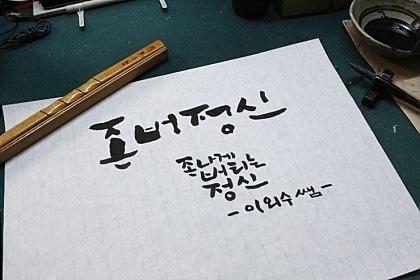 존버정신
존나게
버티는
정신
-이외수 쌤-